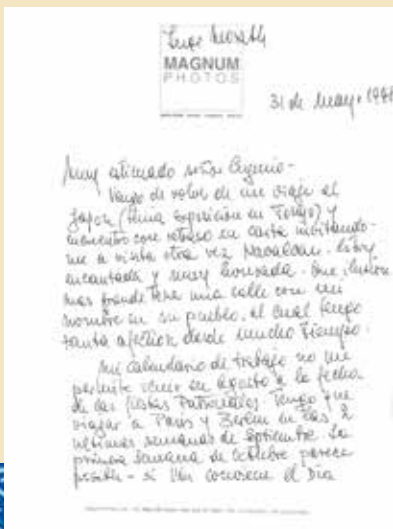 Inge Morath
MAGNUM
PHOTOS
31 de mayo 199
Muy estimado señor Eugenio -
Vengo de volver de un viaje al
Japón (tenía exposición en Tokyo) y
encuentro con retraso su carta invitando-
me a visitar otra vez Navalcan. Estoy
encantada y muy honrada. Que ilusión
mas grande tener una calle con mi
nombre en su pueblo, al cual tengo
tanta afection desde mucho tiempo.
Mi calendario de trabajo no me
permite venir en agosto a la fecha
de las fiestas Patronales. Tengo que
viajar a Paris y Berlin en las 2
ultimas semanas de septiembre. La
primera semana de octubre parece
posible - si el Dia